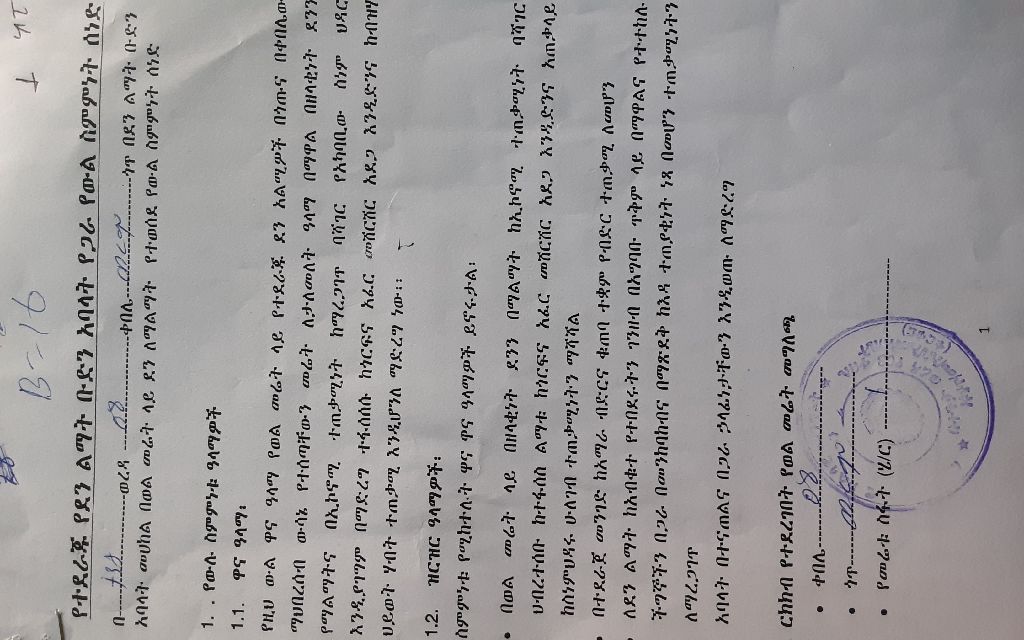 B-16
የተደራጁ የደን ልማት ቡድን አባላት የጋራ የውል ስምምነት ሰነድ
በ-------------ወረዳ ------------ቀበሌ------------ጎጥ በደን ልማት ቡድን
አባላት መሀከል በወል መሬት ላይ ደን ለማልማት የተወሰደ የውል ስምምነት ሰነድ
1. . የውሉ ስምምነቱ ዓላማዎች
1.1. ዋና ዓላማ፡
የዚህ ውል ዋና ዓላማ የወል መሬት ላይ የተደራጁ ደን አልሚዎች በጎጡና በቀበሌው
ማህበረሰብ ውሳኔ የተሰጣቸውን መሬት ለታለመለት ዓላማ በማዋል በዘላቂነት ደንን
የማልማትና በኢኮኖሚ ተጠቃሚነት ከማረጋገጥ ባሻገር የአካባቢው ስነም ህዳር
እንዲያገግም በማድረግ ተፋሰሱ ከጎርፍና አፈር መሸርሸር አደጋ እንዲድንና ከብዝሃ
ህይወት ሃብት ተጠቃሚ እንዲሆንለ ማድረግ ነው፡፡
1.2. ዝርዝር ዓላማዎች፡
ስምምነቱ የሚከተሉት ዋና ዋና ዓላማዎች ይኖሩታል፡
• በወል መሬት ላይ በዘላቂነት ደንን በማልማት ከኢኮኖሚ ተጠቃሚነት ባሻገር
ህብረተሰቡ ከተፋሰስ ልማቱ ከጎርፍና አፈር መሸርሸር አደጋ እንዲድንና አጠቃላይ
ከስነምህዳሩ ሁለገብ ተጠቃሚነትን ማሻሻል
• በተደራጀ መንገድ ከአማራ ብድርና ቁጠባ ተቋም የብድር ተጠቃሚ ለመሆን
• ለደን ልማት ከአብቁተ የተበደሩትን ገንዘብ በአግባቡ ጥቅም ላይ በማዋልና የተተከሉ
ችግኞችን በጋራ በመንከባከብና በማጽደቅ ከእዳ ተጠያቂነት ነጻ በመሆን ተጠቃሚነትን
ለማረጋገጥ
አባላት በተናጠልና በጋራ ኃላፊነታቸውን እንዲወጡ ለማድረግ
ርክክብ የተደረገበት የወል መሬት መግለጫ
• ቀበሌ------------------
• ጎጥ------------------
• የመሬቱ ስፋት (ሄ/ር) ------------------
1